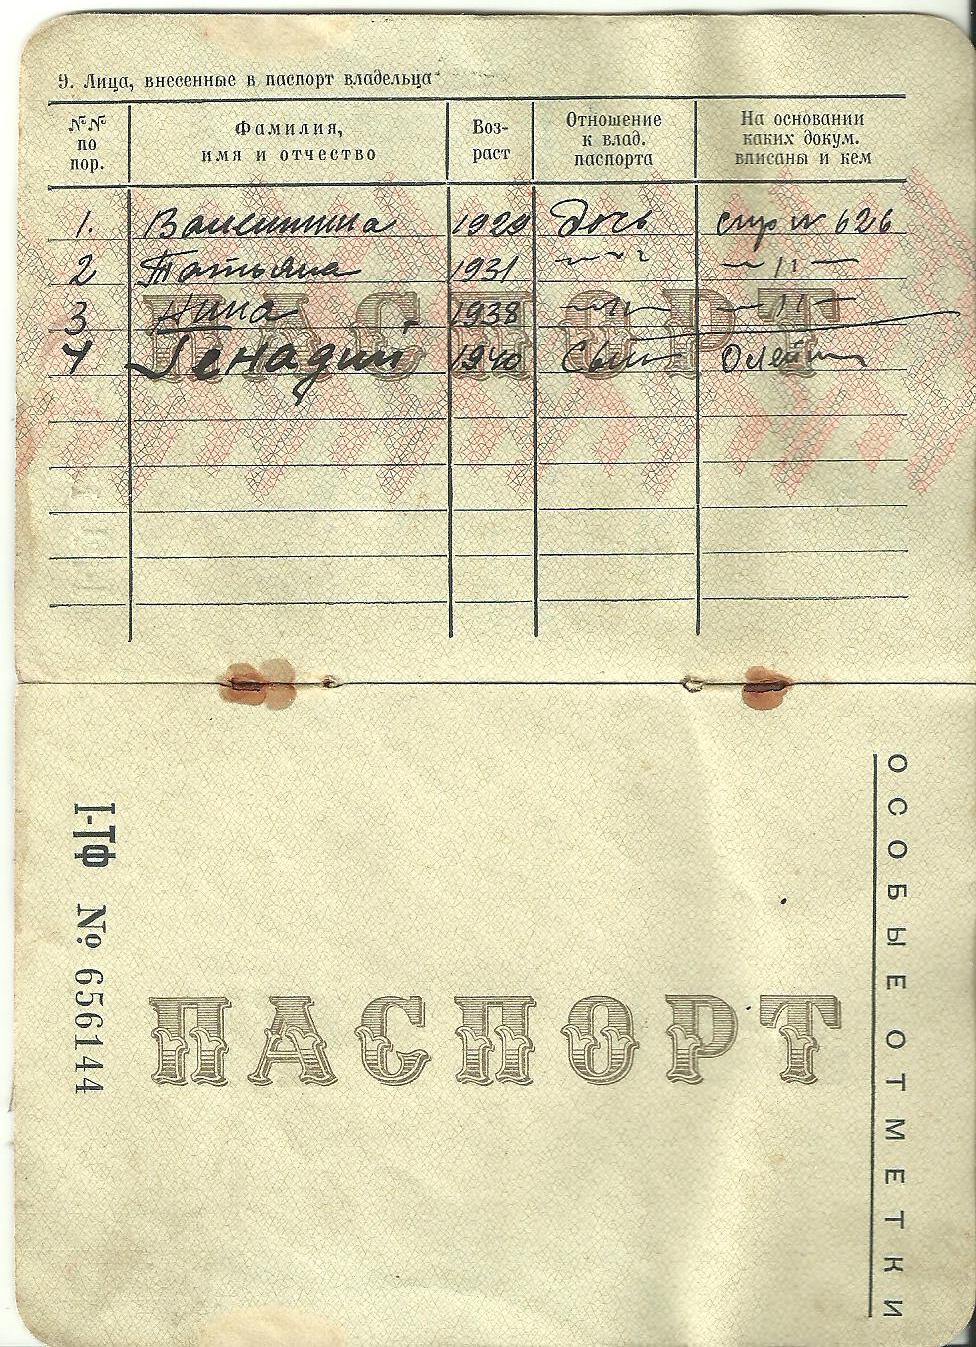 9. Лица, внесенные в паспорт владельца
№№ по пор.
Фамилия, имя и отчество
Воз-раст
Отношение к влад. паспорта
На основании каких докум. вписаны и кем
1. Валентина 1929 дочь спр № 626
2 Татьяна 1931 —"— —"—
3 Нина 1938 —"— —"—
4 Генадий 1940 Сын
ПАСПОРТ
ОСОБЫЕ ОТМЕТКИ
I-ТФ № 656144
ПАСПОРТ